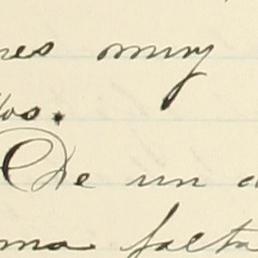 res muy
los.
De un a
ma falta